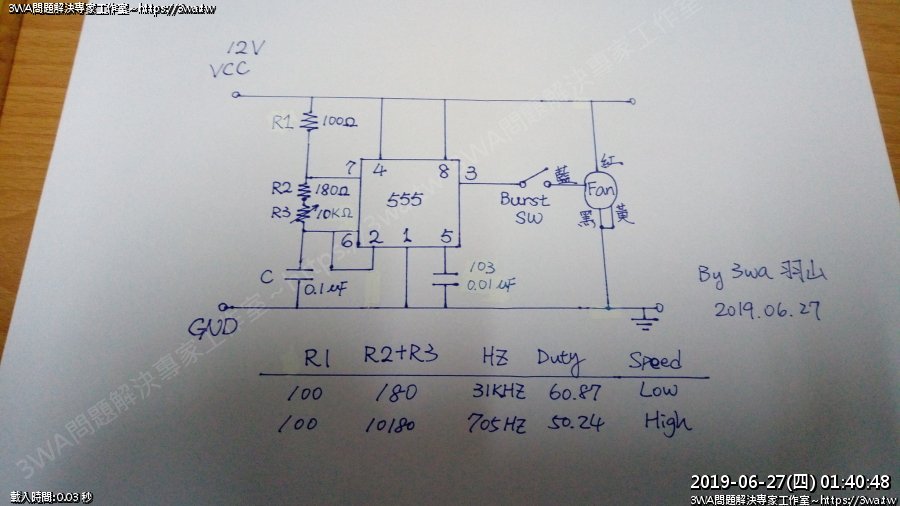 3WA問題解決專家工作室~https://3wa.tw
12V
VCC
R1 100Ω
7 4 8 3
藍
紅
R2 180Ω
555
Burst
SW
Fan
R3 10KΩ
黑 黃
6 2 1 5
C 0.1uF
103
0.01uF
GND
By 3wa 羽山
2019.06.27
R1 R2+R3 HZ Duty Speed
100 180 31KHZ 60.87 Low
100 10180 705HZ 50.24 High
3WA問題解決專家工作室~https://3wa.tw
2019-06-27(四) 01:40:48
載入時間:0.03 秒
3WA問題解決專家工作室~https://3wa.tw